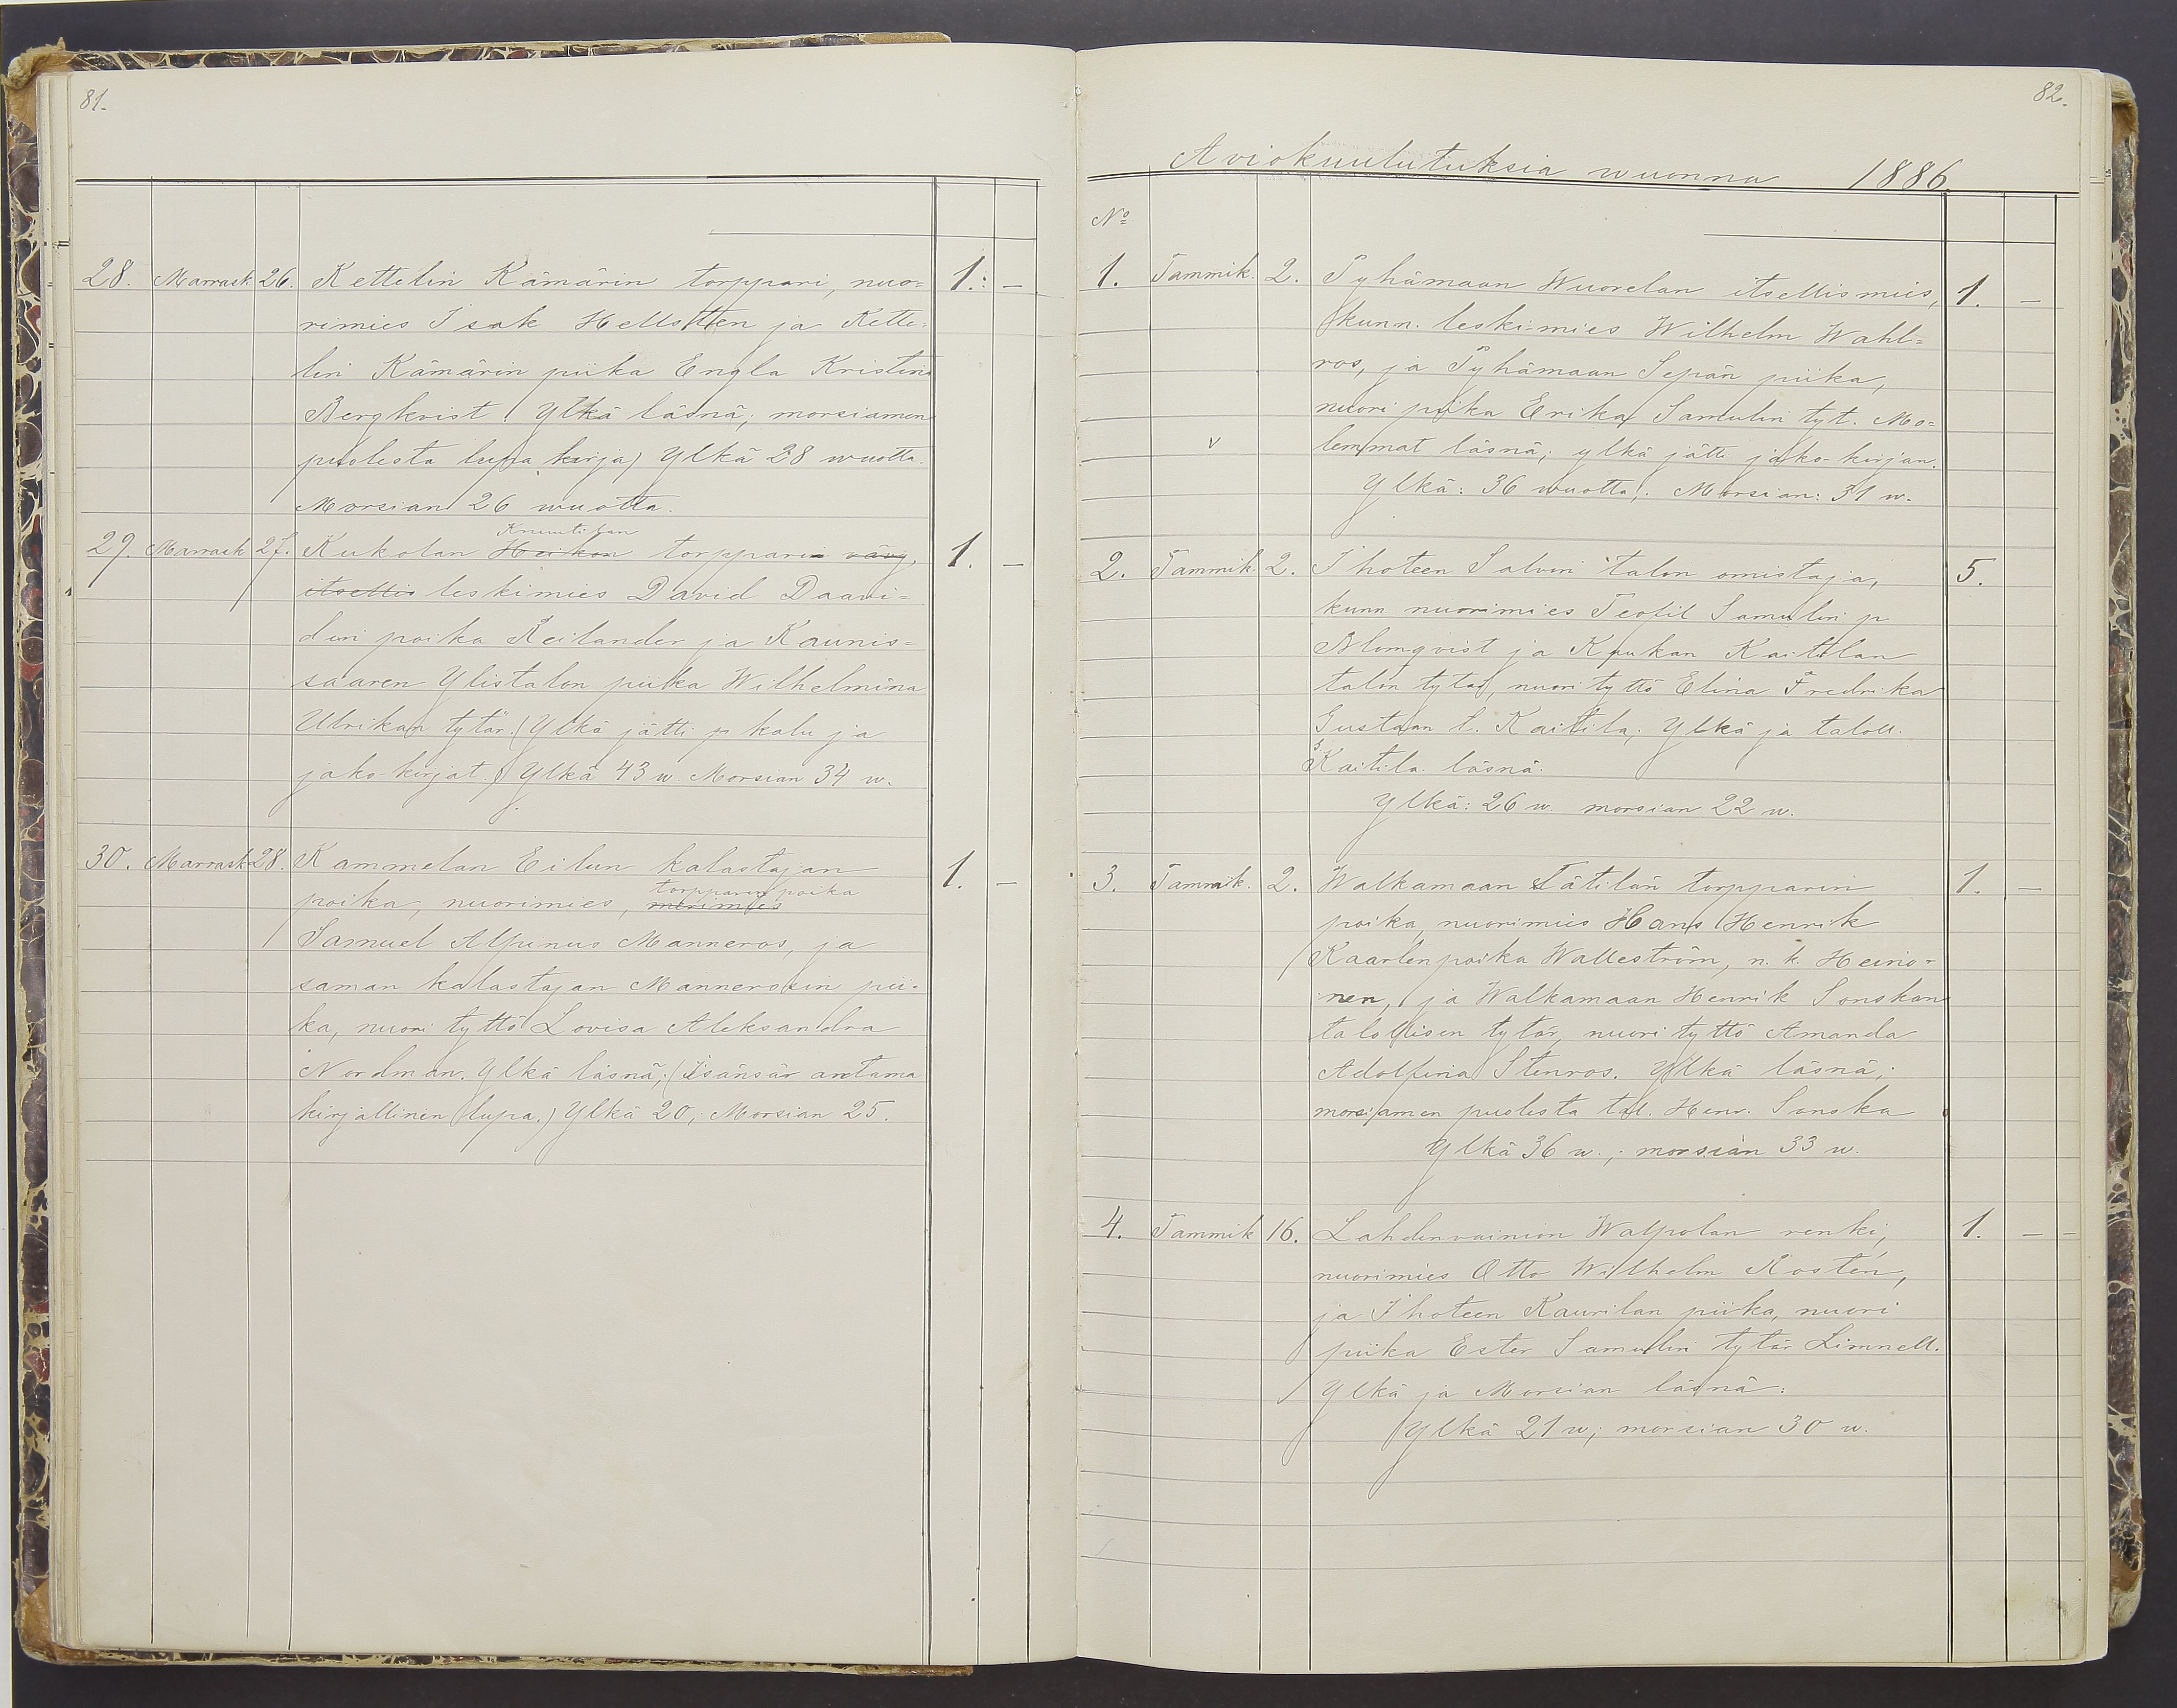 81.
28. Marrask. 26. Kettelin Kämärin torppari, nuo= 1. —
rimies Isak Hellsten ja Kette=
lin Kämärin piika Engla Kristina
Bergkvist. Ylkä läsnä; morsiamen
puolesta lupa kirja) Ylkä 28 wuotta.
Morsian 26 wuotta.
29. Marrask 27. Kukolan Heikon torpparin vävy, 1. —
itsellis leskimies David Daavi=
din poika Reilander ja Kaunis=
saaren Ylistalon piika Wilhelmina
Ulrikan tytär. (Ylkä jätti p kalu ja
jako-kirjat.) Ylkä 43 w. Morsian 34 w.
30. Marrask 28. Kammelan Eilun kalastajan 1. —
torpparin poika
poika, nuorimies, merimies
Samuel Alpinus Manneros, ja
saman kalastajan Mannerosin pii-
ka, nuori tyttö Lovisa Aleksandra
Nordman. Ylkä läsnä; (Isänsä antama
kirjallinen lupa.) Ylkä 20, Morsian 25.
82.
Aviokuulutuksia wuonna 1886.
No
1. Tammik. 2. Pyhämaan Wuorelan itsellismies, 1. —
kunn. leskimies Wilhelm Wahl=
ros, ja Pyhämaan Sepän piika,
nuori piika Erika Samulin tyt. Mo=
v lemmat läsnä; ylkä jätti jako-kirjan.
Ylkä: 36 wuotta; Morsian: 31 w.
2. Tammik. 2. Ihoteen Salvin talon omistaja, 5.
kunn nuorimies Teofil Samulin p
Blomqvist ja Kaukan Kaitilan
talon tytär, nuori tyttö Elina Fredrika
Gustaan t. Kaitila; Ylkä ja taloll.
G. Kaitila läsnä.
Ylkä: 26 w. morsian 22 w.
3. Tammik. 2. Walkamaan Tätilän torpparin 1. —
poika, nuorimies Hans Henrik
Kaarlenpoika Walleström, n. k. Heino-
nen, ja Walkamaan Henrik Sonskan
talollisen tytär, nuori tyttö Amanda
Adolfina Stenros. Ylkä läsnä;
morsiamen puolesta tal. Henr. Sonska
Ylkä 36 w.; morsian 33 w.
4. Tammik 16. Lahdenvainion Walpolan renki, 1. — —
nuorimies Otto Wilhelm Kostén,
ja Ihoteen Kaurilan piika, nuori
piika Ester Samulin tytär Limnell.
Ylkä ja Morsian läsnä:
Ylkä 21 w; morsian 30 w.